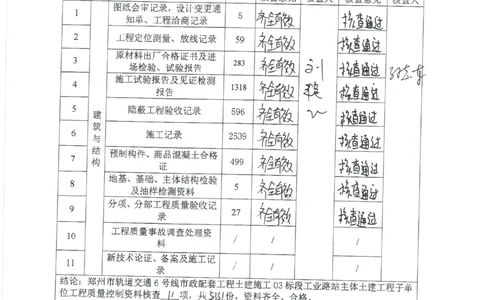 1 图纸会审记录，设计变更通 5 齐全有效 核查通过
知单、工程洽商记录
2 工程定位测量、放线记录 59 齐全有效 核查通过
3 原材料出厂合格证书及进 283 齐全有效 核查通过
场检验、试验报告
4 施工试验报告及见证检测 1318 齐全有效 核查通过
报告
5 隐蔽工程验收记录 596 齐全有效 核查通过
建筑与结构
6 施工记录 2539 齐全有效 核查通过
7 预制构件、商品混凝土合格 499 齐全有效 核查通过
证
8 地基、基础、主体结构检验 5 齐全有效 核查通过
及抽样检测资料
9 分项、分部工程质量验收记 27 齐全有效 核查通过
录
10 工程质量事故调查处理资 / / /
料
11 新技术论证、备案及施工记 / / /
录
结论：郑州市轨道交通6号线市政配套工程土建施工03标段工业路站主体土建工程子单
位工程质量控制资料核查 11 项，共 份，资料齐全、合格。